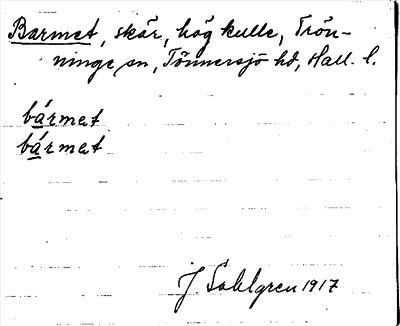 Barmet, skär, hög kulle, Trön-
ninge sn, Tönnersjö hd, Hall. l.
bármet
bármet
J. Sahlgren 1917